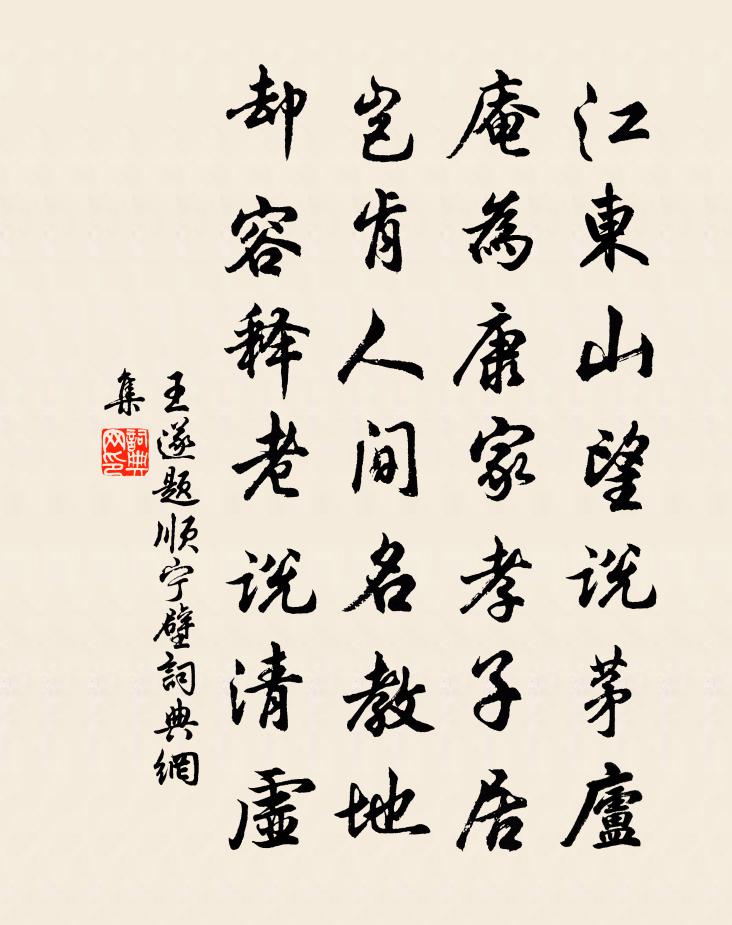 江東山望説茅廬
庵為康家孝子居
豈肯人间名教地
却容释老説清虛
王遂题順宁壁詞典網
集
詞典网印